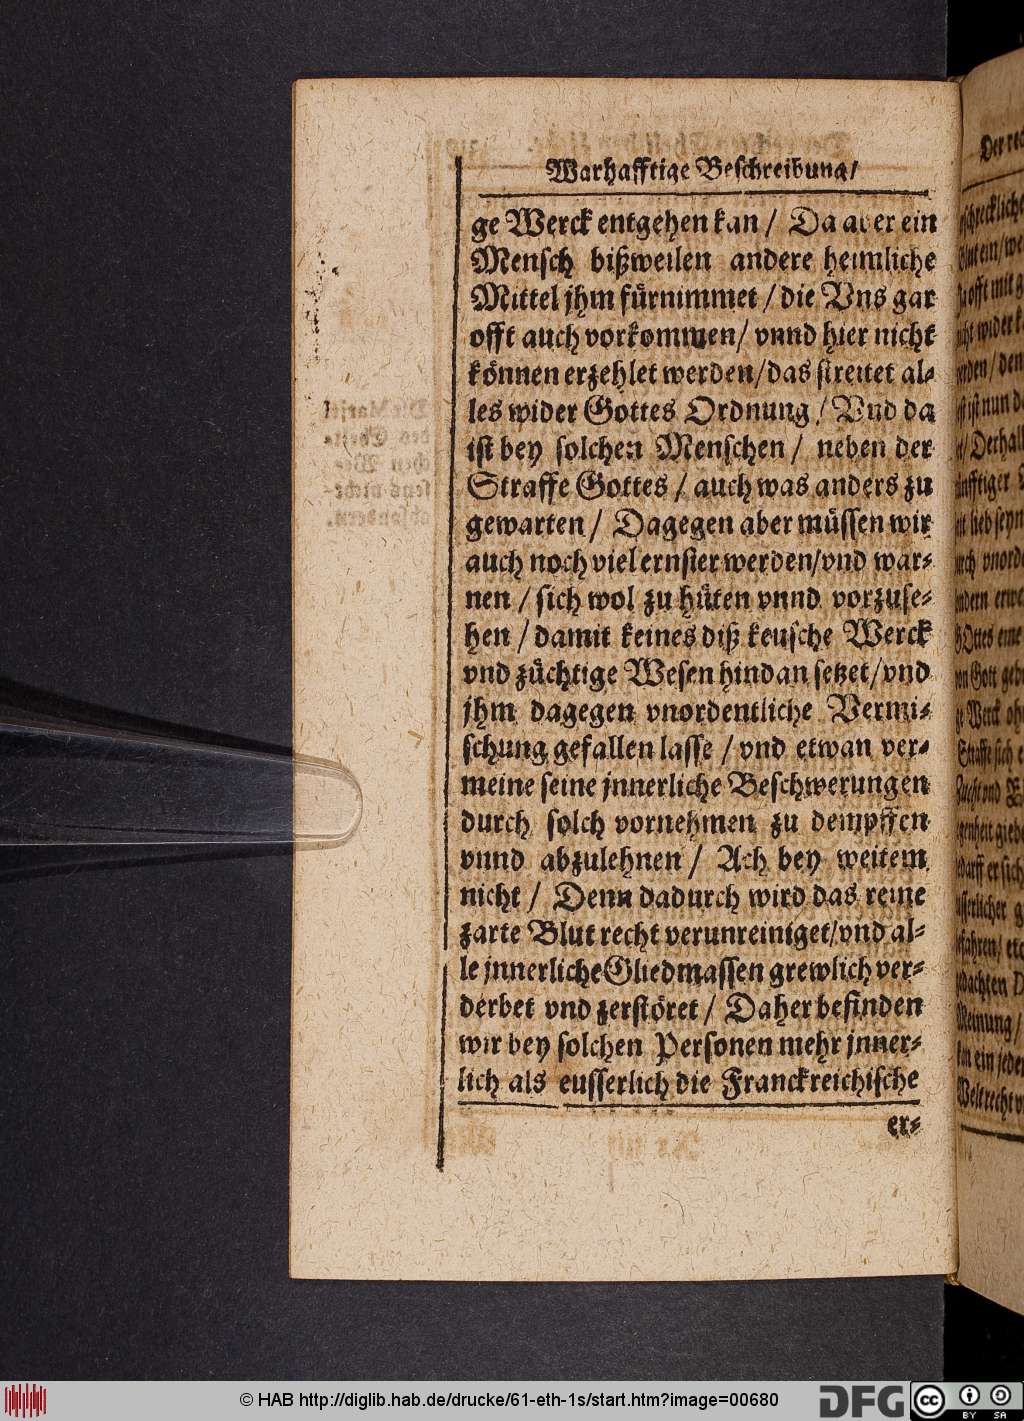 Warhafftige Beschreibung/
ge Werck entgehen kan / Da aber ein
Mensch bißweilen andere heimliche
Mittel jhm fürnimmet / die Vns gar
offt auch vorkommen / vnnd hier nicht
können erzehlet werden / das streitet al-
les wider Gottes Ordnung / Vnd da
ist bey solchen Menschen / neben der
Straffe Gottes / auch was anders zu
gewarten / Dagegen aber müssen wir
auch noch viel ernster werden / vnd war-
nen / sich wol zu hüten vnnd vorzuse-
hen / damit keines diß keusche Werck
vnd züchtige Wesen hindan setzet / vnd
jhm dagegen vnordentliche Vermi-
schung gefallen lasse / vnd etwan ver-
meine seine jnnerliche Beschwerungen
durch solch vornehmen zu dempffen
vnnd abzulehnen / Ach bey weitem
nicht / Denn dadurch wird das reine
zarte Blut recht verunreiniget / vnd al-
le jnnerliche Gliedmassen grewlich ver-
derbet vnd zerstöret / Daher befinden
wir bey solchen Personen mehr jnner-
lich als eusserlich die Franckreichische
er-
© HAB http://diglib.hab.de/drucke/61-eth-1s/start.htm?image=00680
DFG
cc BY SA